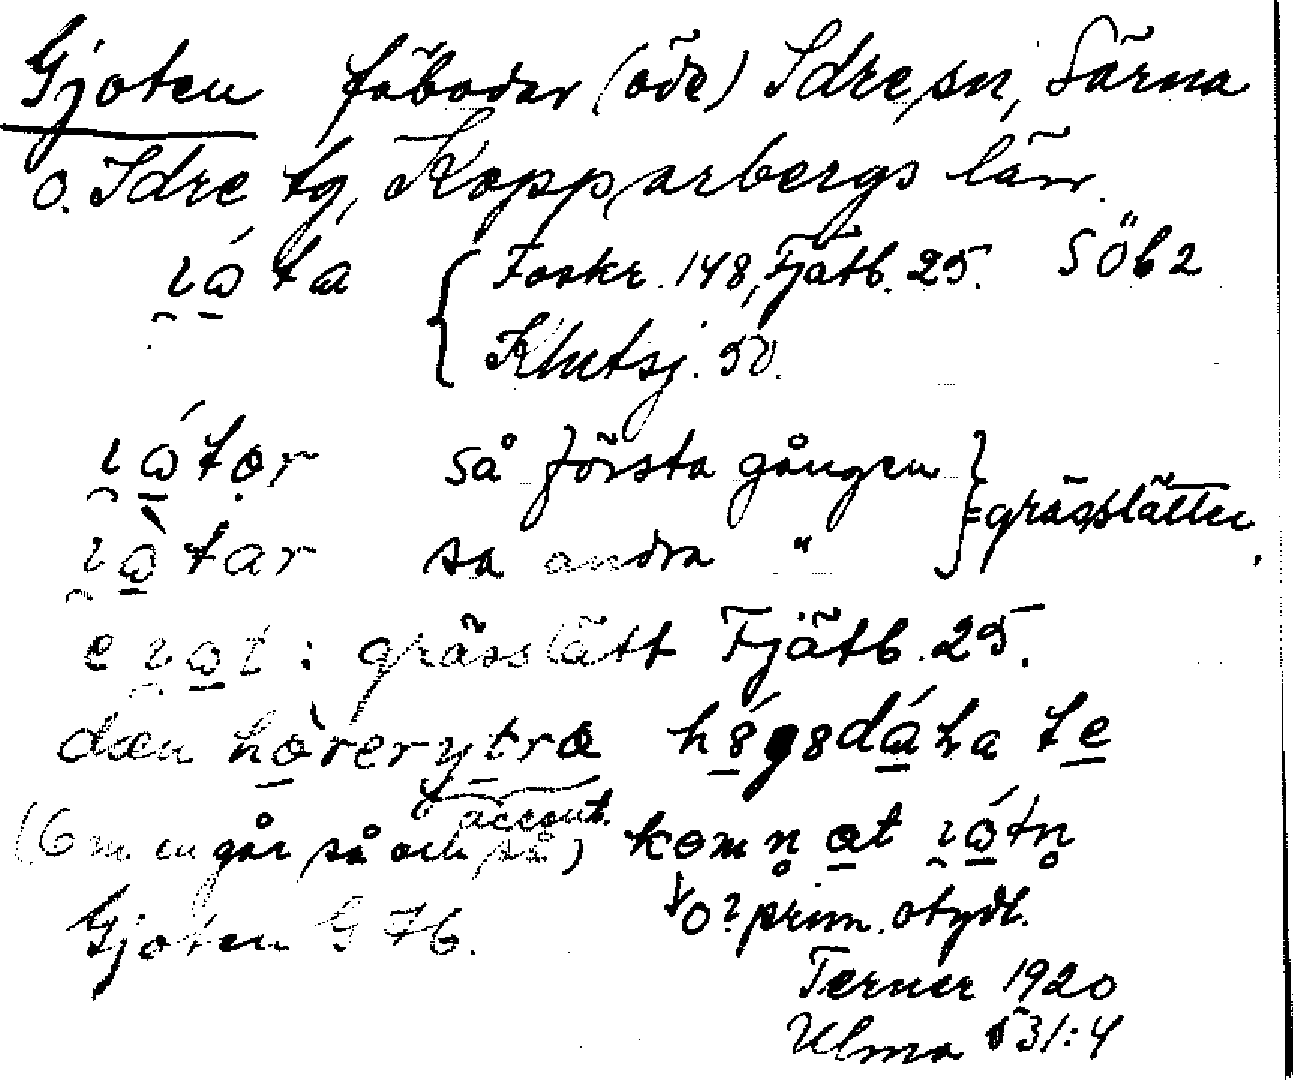 Gjoten fäbodar (öde) Idre sn, Särna
o. Idre tg, Kopparbergs län.
ɩɑ́ta { Foskr. 148, Fjätb. 25. SÖB2
Klutsj. 50.
ɩɑ́tər så första gången }
ɩɑ̀tar sa andra " } =grässlätter.
e ɩɑt : grässlätt Fjätb. 25.
dæn
(6 m. en går så och så) accent.
Gjoten G 76. o? prim. otydl.
Terner 1920
Ulma 531:4